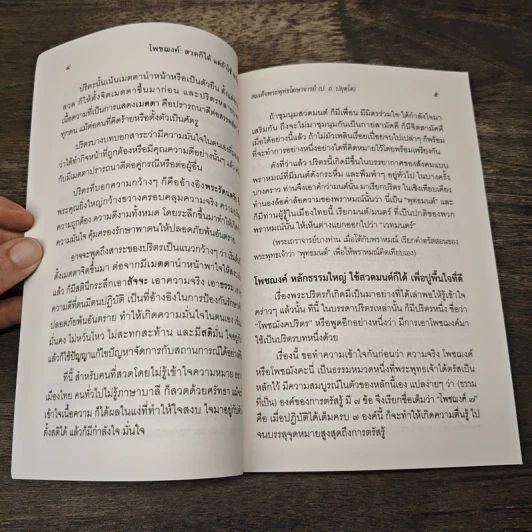 ๔
โพชฌงค์: สวดก็ได้
ปริตรนั้นเน้นเมตตานำหน้าหรือเป็นตัวยืน
สวด ก็ให้ตั้งจิตเมตตาขึ้นมาก่อน และปริตรหลาย
เนื้อความที่เป็นการแสดงเมตตา คือปรารถนาดีต่อสรรพ
ทุกคน แม้ต่อคนที่คิดร้ายหรือตั้งตัวเป็นศัตรู
ปริตรบางบทบอกสาระว่ามีความมั่นใจในตนเอง
ว่าได้ทำกิจหน้าที่ถูกต้องหรือมีคุณความดีอย่างนั้นๆ
ก็มีเมตตาปรารถนาดีต่อคู่กรณีหรือต่อผู้อื่น
ปริตรที่บอกความกว้างๆ ก็คืออ้างอิงพระรัตนตรัย
พระคุณยิ่งใหญ่กว้างขวางครอบคลุมความจริง ความ
ความถูกต้อง ความดีงามทั้งหมด โดยระลึกขึ้นมาทำให้เกิด
ความมั่นใจ คุ้มครองรักษาพาตนให้ปลอดภัยพ้นอันตราย
อาจจะพูดถึงสาระของปริตรเป็นแนวกว้างๆ ว่า เริ่มต้น
ตั้งเมตตาจิตขึ้นมา ต่อจากมีเมตตานำหน้าพาใจให้สงบ
แล้ว ก็มีสตินึกระลึกเอาสัจจะ เอาความจริง เอาธรรม
ความดีที่ตนมีตนปฏิบัติ เป็นที่อ้างอิงในการป้องกันรักษา
ปลอดภัยพ้นอันตราย ทำให้เกิดความมั่นใจในตนเอง
มั่นคง ไม่หวั่นไหว ไม่สะทกสะท้าน และมีสติมั่น ใจอยู่
แล้วก็ใช้ปัญญาแก้ไขปัญหาจัดการกับสถานการณ์ได้อย่างดี
ทีนี้ สำหรับคนที่สวดโดยไม่รู้เข้าใจความหมาย
เมืองไทย คนทั่วไปไม่รู้ภาษาบาลี ก็สวดด้วยศรัทธา แม้จะ
เข้าใจเนื้อความ ก็ได้ผลในแง่ที่ทำให้ใจสงบ ใจมาอยู่กับ
ตั้งสติได้ แล้วก็มีกำลังใจ มั่นใจ
สมเด็จพระพุทธโฆษาจารย์ (ป. อ. ปยุตฺโต)
๕
ถ้าชุมนุมสวดมนต์ ก็มีเพื่อน มีมิตรร่วมใจ ได้กำลังใจมา
เสริมกัน ถึงจะไม่มาชุมนุมกันเป็นกายสามัคคี ก็มีจิตสามัคคี
เมื่อใจได้อย่างนี้แล้ว ถ้าไม่มัวเพลินเรื่อยเปื่อยจบไปเปล่าๆ ก็พร้อม
ที่จะทำการอย่างหนึ่งอย่างใดที่คิดหมายไว้โดยพร้อมเพรียงกัน
ดังที่ว่าแล้ว ปริตรนี้เกิดมีขึ้นในบรรยากาศของสังคมแบบ
พราหมณ์ที่มีมนต์ดังกระหึ่ม และพึมพำๆ อยู่ทั่วไป ในบางครั้ง
บางคราว ท่านจึงเอาคำว่ามนต์นั้น มาเรียกปริตร ในเชิงเทียบเคียง
ทำนองล้อคำล้อความของพราหมณ์นั้นว่า นี่เป็น "พุทธมนต์" และ
ก็มีท่านผู้รู้ในเมืองไทยนี้ เรียกมนต์/มนตร์ ที่เป็นปกติของพวก
พราหมณ์นั้น ให้เห็นต่างแยกออกไปว่า "เวทมนตร์"
(พระเถราจารย์บางท่าน เมื่อโต้กับพราหมณ์ เรียกคำตรัสสอนของ
พระพุทธเจ้าว่า "พุทธมนต์" เพื่อให้พราหมณ์คิดเทียบเอง)
โพชฌงค์ หลักธรรมใหญ่ ใช้สวดมนต์ก็ได้ เพื่อปูพื้นใจที่ดี
เรื่องพระปริตรก็เกิดมีเป็นมาอย่างที่ได้เล่าพอให้รู้เข้าใจ
คร่าวๆ แล้วนั้น ทีนี้ ในบรรดาปริตรเหล่านั้น ก็มีปริตรหนึ่ง ชื่อว่า
"โพชฌังคปริตร" หรือพูดอีกอย่างหนึ่งว่า มีการเอาโพชฌงค์มา
ใช้เป็นปริตรบทหนึ่งด้วย
เรื่องนี้ ขอทำความเข้าใจกันก่อนว่า ความจริง โพชฌงค์
หรือโพชฌังคะนี้ เป็นธรรมหมวดหนึ่งที่พระพุทธเจ้าได้ตรัสเป็น
หลักไว้ มีความสมบูรณ์ในตัวของหลักนี้เอง แปลง่ายๆ ว่า (ธรรม
ที่เป็น) องค์ของการตรัสรู้ มี ๗ ข้อ จึงเรียกชื่อเต็มว่า "โพชฌงค์ ๗"
คือ เมื่อปฏิบัติได้เต็มครบ ๗ องค์นี้ ก็จะทำให้เกิดความตื่นรู้ ไป
จนบรรลุจุดหมายสูงสุดถึงการตรัสรู้